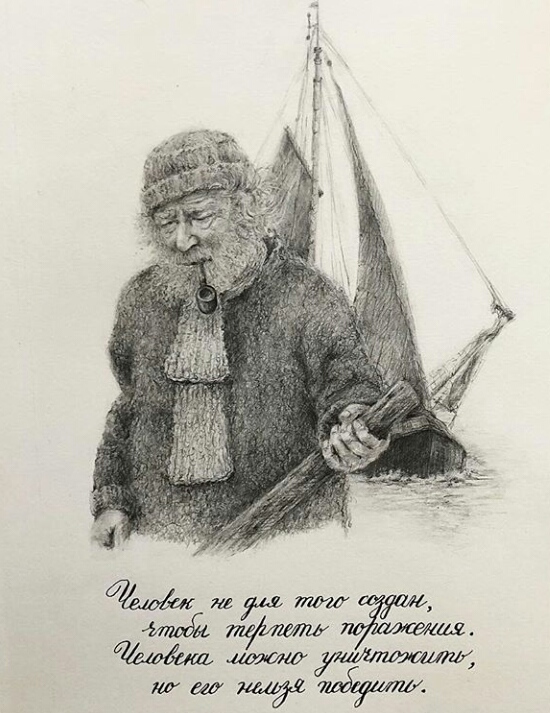 Человек не для того создан,
чтобы терпеть поражения.
Человека можно уничтожить,
но его нельзя победить.